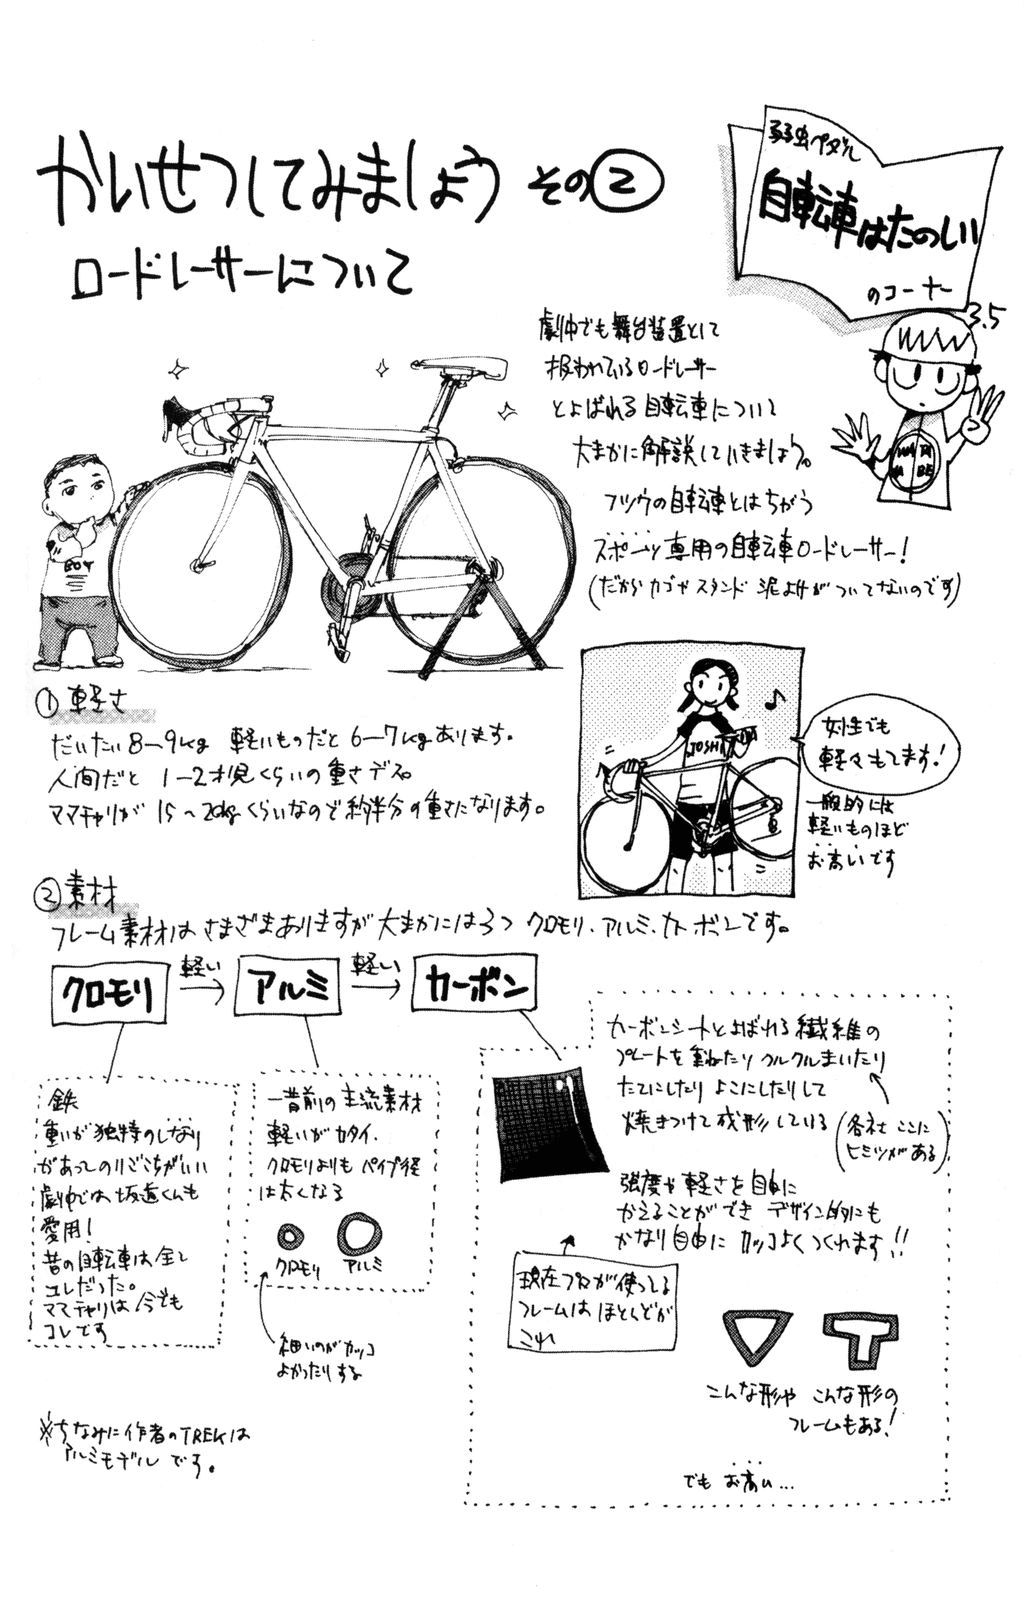 かいせつしてみましょう その②
ロードレーサーについて
弱虫ペダル
自転車はたのしい
のコーナー
3.5
劇中でも舞台装置として
扱われているロードレーサー
とよばれる自転車について
大まかに解説していきましょう。
フツウの自転車とはちがう
スポーツ専用の自転車ロードレーサー！
（だからカゴやスタンド 泥よけがついてないのです）
WATA
NABE
BOY
①軽さ
だいたい8〜9kg 軽いものだと6〜7kgあります。
人間だと 1〜2才児くらいの重さデス。
ママチャリが 15〜20kgくらいなので約半分の重さになります。
TOSHI
女性でも
軽々もてます！
一般的には
軽いものほど
お高いです
②素材
フレーム素材はさまざまありますが大まかには3つ クロモリ、アルミ、カーボンです。
クロモリ
軽い
アルミ
軽い
カーボン
鉄
重いが独特のしなり
があってのりごこちがいい
劇中では坂道くんも
愛用！
昔の自転車は全て
コレだった。
ママチャリは今でも
コレです
一昔前の主流素材
軽いがカタイ.
クロモリよりもパイプ径
は太くなる
クロモリ アルミ
細いのがカッコ
よかったりする
カーボンシートとよばれる繊維の
プレートを重ねたりクルクルまいたり
たてにしたりよこにしたりして
焼きつけて成形している
（各社ここに
ヒミツがある）
強度や軽さを自由に
かえることができ デザイン的にも
かなり自由に カッコよくつくれます!!
現在プロが使ってる
フレームはほとんどが
これ
こんな形や こんな形の
フレームもある！
でも お高い…
※ちなみに作者のTREKは
アルミモデルです。